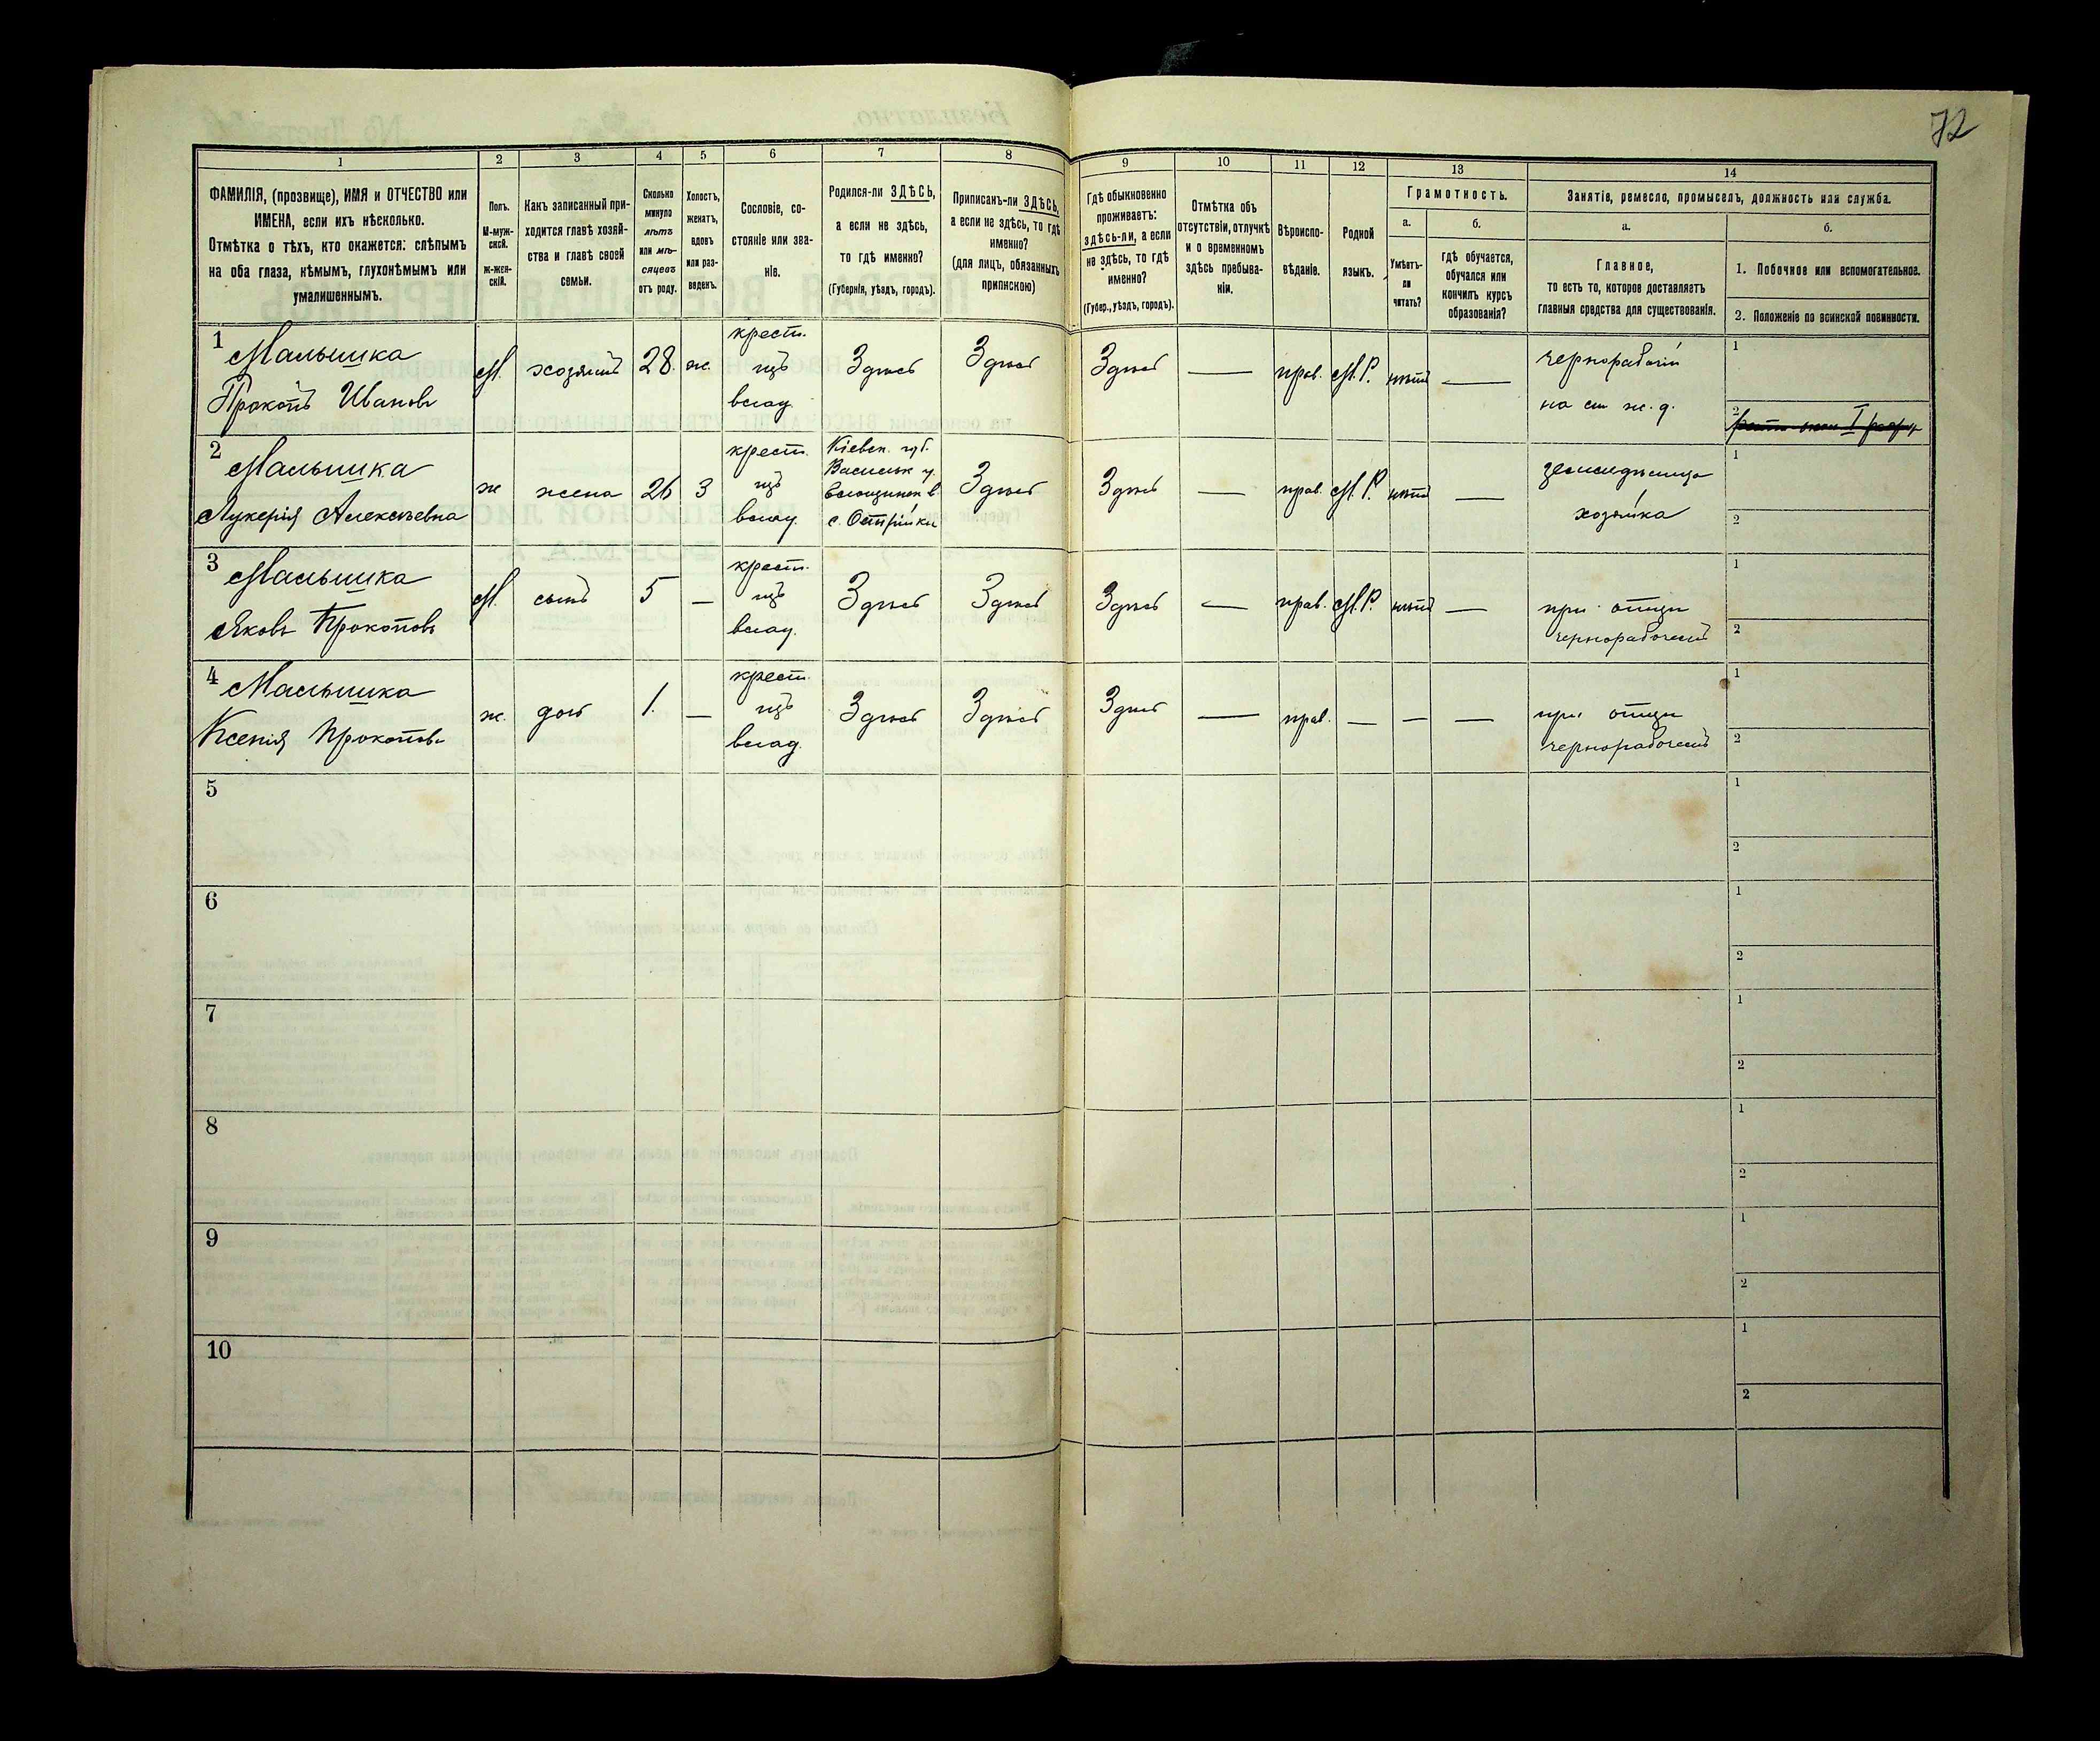 72
1 2 3 4 5 6 7 8 9 10 11 12 13 14
ФАМИЛІЯ, (прозвище), ИМЯ и ОТЧЕСТВО или
ИМЕНА, если ихъ нѣсколько.
Отмѣтка о тѣхъ, кто окажется: слѣпымъ
на оба глаза, нѣмымъ, глухонѣмымъ или
умалишеннымъ.
Полъ.
М-муж-
ской.
ж-жен-
скій.
Какъ записанный при-
ходится главѣ хозяй-
ства и главѣ своей
семьи.
Сколько
минуло
лѣтъ
или мѣ-
сяцевъ
отъ роду.
Холостъ,
женатъ,
вдовъ
или раз-
веденъ.
Сословіе, со-
стояніе или зва-
ніе.
Родился-ли ЗДѢСЬ,
а если не здѣсь,
то гдѣ именно?
(Губернія, уѣздъ, городъ).
Приписанъ-ли ЗДѢСЬ,
а если не здѣсь, то гдѣ
именно?
(для лицъ, обязанныхъ
припискою)
Гдѣ обыкновенно
проживаетъ:
здѣсь-ли, а если
не здѣсь, то гдѣ
именно?
(Губер., уѣздъ, городъ).
Отмѣтка объ
отсутствіи, отлучкѣ
и о временномъ
здѣсь пребыва-
ніи.
Вѣроиспо-
вѣданіе.
Родной
языкъ.
Грамотность.
а.
Умѣетъ-
ли
читать?
б.
гдѣ обучается,
обучался или
кончилъ курсъ
образованія?
Занятіе, ремесло, промыселъ, должность или служба.
а.
Главное,
то есть то, которое доставляетъ
главныя средства для существованія.
б.
1. Побочное или вспомогательное.
2. Положеніе по воинской повинности.
1
Малышка
Прокопъ Ивановъ
М.
хозяинъ
28.
ж.
крест.
изъ
влад.
Здѣсь
Здѣсь
Здѣсь
—
прав.
М.Р.
нѣтъ
—
чернорабочій
на ст ж. д.
1
2
2
Малышка
Лукерія Алексѣевна
ж
жена
26
З
крест.
изъ
влад.
Кіевск. губ.
Васильк у.
с. Острійки
Здѣсь
Здѣсь
—
прав.
М.Р.
нѣтъ
—
хозяйка
1
2
3
Малышка
Яковъ Прокоповъ
М.
сынъ
5
—
крест.
изъ
влад.
Здѣсь
Здѣсь
Здѣсь
—
прав.
М.Р.
нѣтъ
—
при отцѣ
чернорабочемъ
1
2
4
Малышка
Ксенія Прокопов.
ж.
доч
1.
—
крест.
изъ
влад.
Здѣсь
Здѣсь
Здѣсь
—
прав.
—
—
—
при отцѣ
чернорабочемъ
1
2
5
1
2
6
1
2
7
1
2
8
1
2
9
1
2
10
1
2